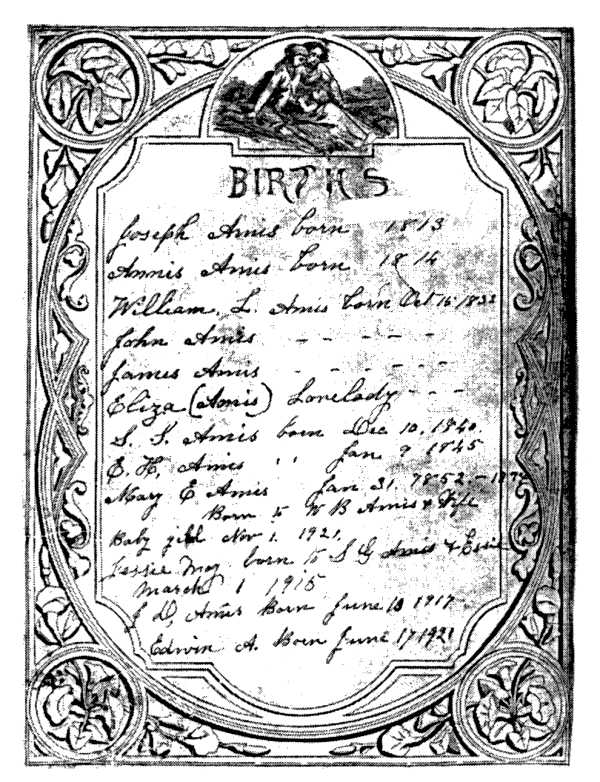 BIRTHS
Joseph Amis born 1813
Annis Amis born 1814
William. L. Amis born Oct 1832
John Amis - - - -
James Amis - - - -
Eliza (Amis) Lovelady - - -
S. S. Amis born Dec 10, 1840.
E. H. Amis " Jan 9 1845
Mary E Amis Jan 31, 1852. -
Born to W B Amis & Wife
Baby girl Nov 1. 1921.
Jessie May born to S G Amis & Essie
March 1 1915
J D, Amis Born June 1917.
Edwin A. Born June 17 1921